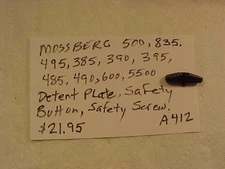 MOSSBERG 500, 835,
495, 385, 390, 395,
485, 490, 600, 5500
Detent Plate, Safety
Button, Safety Screw.
$21.95 A412